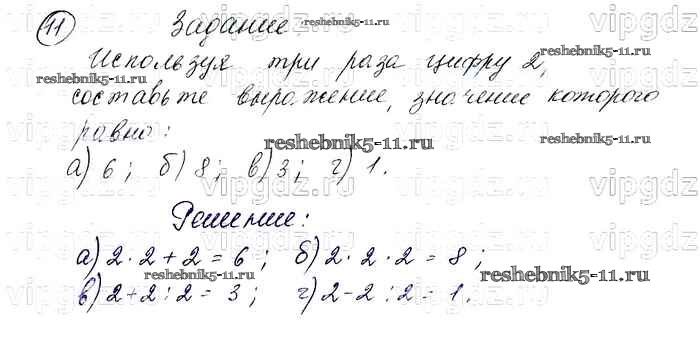 11 Задание reshebnik5-11.ru vipgdz
Используя три раза цифру 2,
reshebnik5-11.ru
составьте выражение, значение которого
равно: reshebnik5-11.ru reshebnik5-11.ru
vipgdz vipgdz vipgdz vipgdz
а) 6; б) 8; в) 3; г) 1.
Решение:
а) 2 · 2 + 2 = 6; б) 2 · 2 · 2 = 8;
reshebnik5-11.ru reshebnik5-11.ru
в) 2+2:2 = 3; г) 2-2:2 = 1.
vipgdz vipgdz vipgdz vipgdz